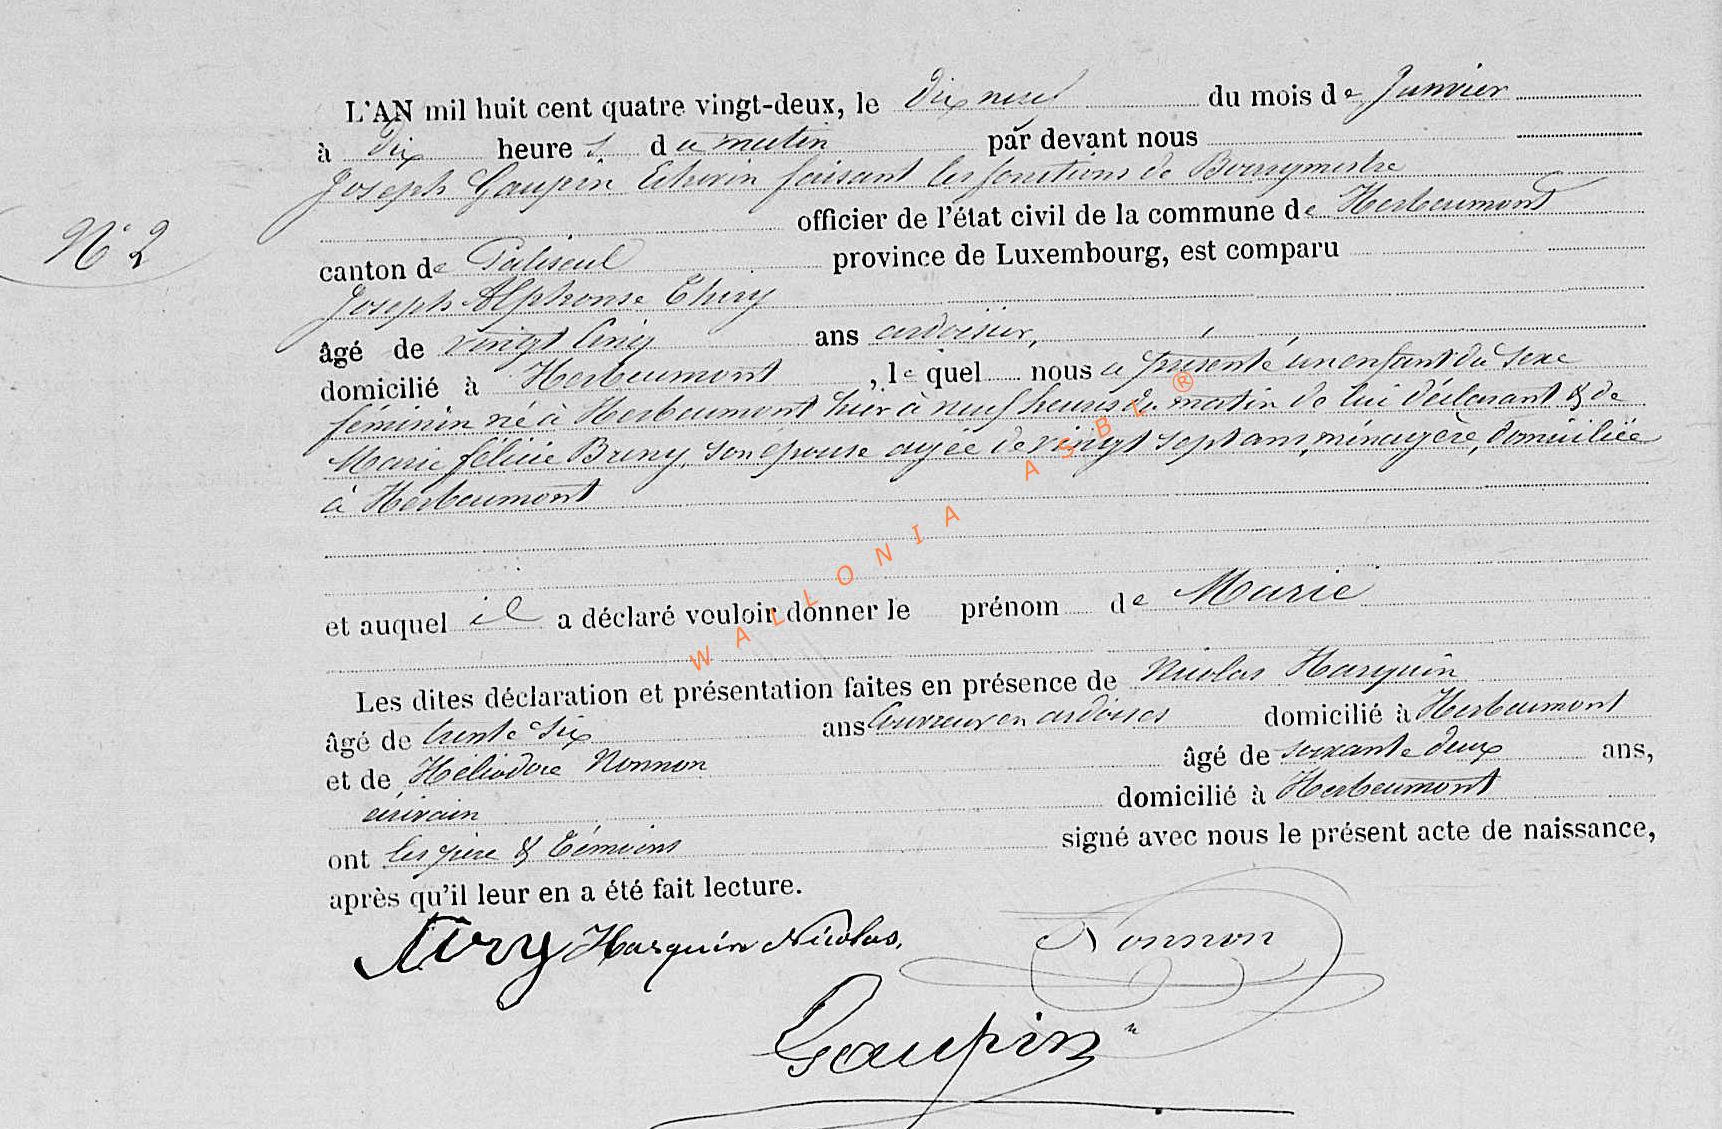 L'AN mil huit cent quatre vingt-deux, le dix neuf du mois de Janvier
à dix heures du matin par devant nous
Joseph Gaupin Echevin faisant les fonctions de Bourgmestre
officier de l'état civil de la commune de Herbeumont
N° 2
canton de Paliseul province de Luxembourg, est comparu
Joseph Alphonse Thiry
âgé de vingt cinq ans ardoisier,
domicilié à Herbeumont, lequel nous a présenté un enfant du sexe
féminin né à Herbeumont hier à neuf heures du matin de lui déclarant & de
Marie félicie Bruny, son épouse agée de vingt sept ans, ménagère, domiciliée
à Herbeumont
et auquel il a déclaré vouloir donner le prénom de Marie
Les dites déclaration et présentation faites en présence de Nicolas Harquin
âgé de trente six ans Couvreur en ardoises domicilié à Herbeumont
et de Héliodore Nonnon âgé de soixante deux ans,
écrivain domicilié à Herbeumont
ont les père & témoins signé avec nous le présent acte de naissance,
après qu'il leur en a été fait lecture.
Harquin Nicolas.
Nonnon
Gaupin
WALLONIA ASBL ®